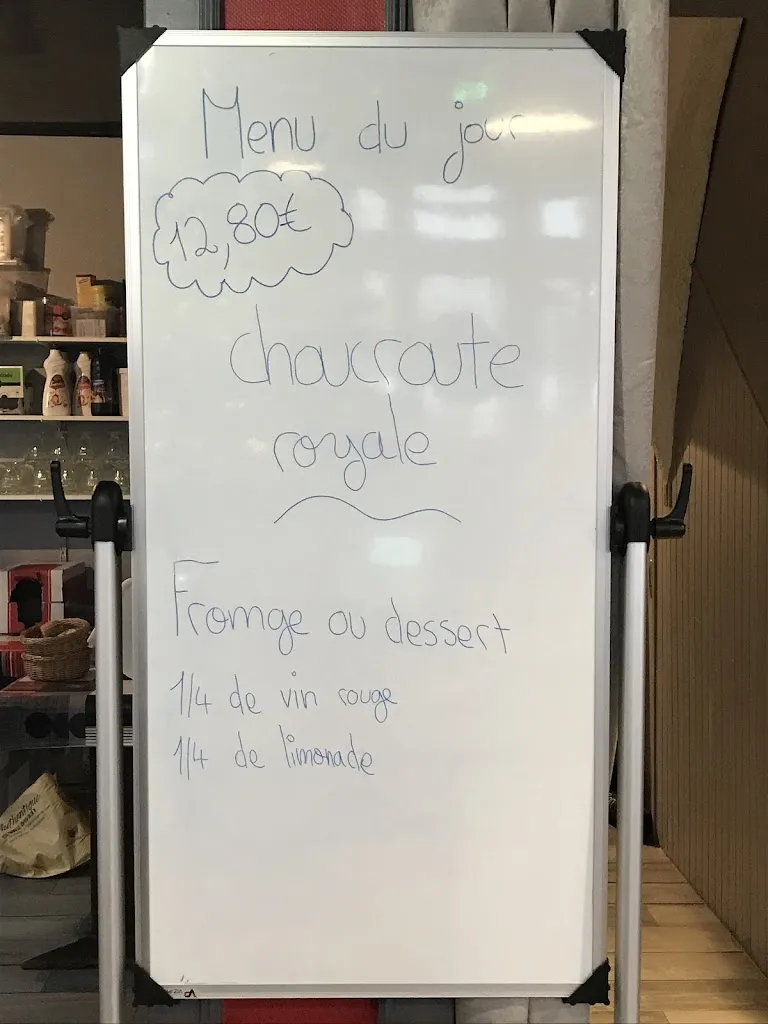 Menu du jour
12,80€
choucroute
royale
Fromge ou dessert
1/4 de vin rouge
1/4 de limonade
Authentique